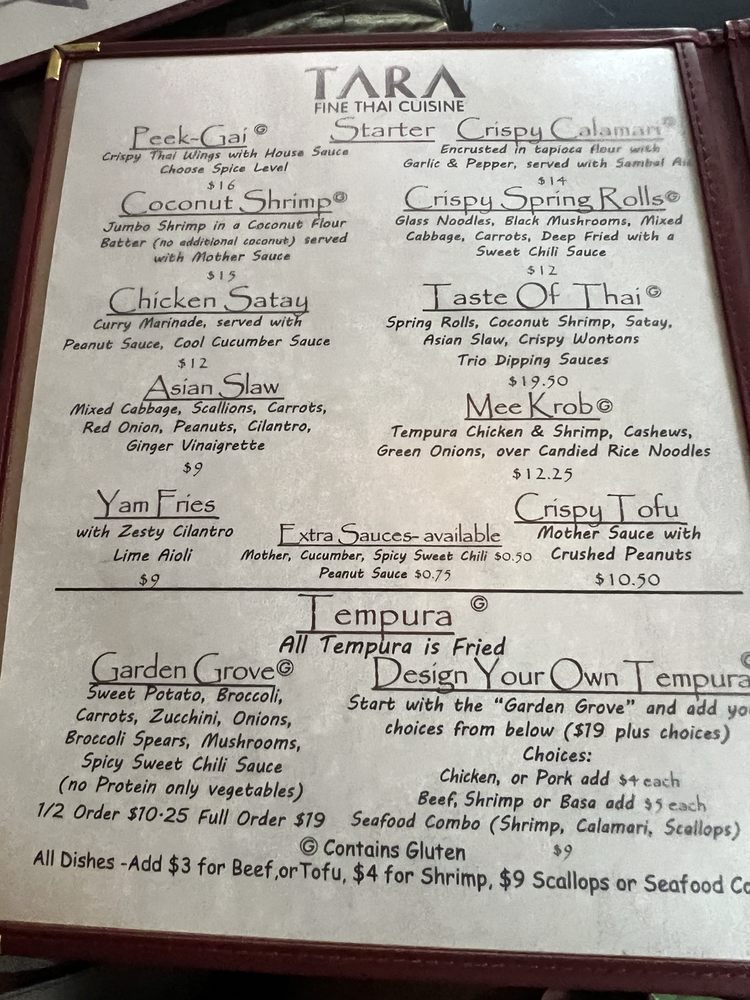 TARA
FINE THAI CUISINE
Starter
Peek-Gai Ⓖ
Crispy Thai Wings with House Sauce
Choose Spice Level
$16
Coconut Shrimp Ⓖ
Jumbo Shrimp in a Coconut Flour
Batter (no additional coconut) served
with Mother Sauce
$15
Chicken Satay
Curry Marinade, served with
Peanut Sauce, Cool Cucumber Sauce
$12
Asian Slaw
Mixed Cabbage, Scallions, Carrots,
Red Onion, Peanuts, Cilantro,
Ginger Vinaigrette
$9
Yam Fries
with Zesty Cilantro
Lime Aioli
$9
Crispy Calamari Ⓖ
Encrusted in tapioca flour with
Garlic & Pepper, served with Sambal
$14
Crispy Spring Rolls Ⓖ
Glass Noodles, Black Mushrooms, Mixed
Cabbage, Carrots, Deep Fried with a
Sweet Chili Sauce
$12
Taste Of Thai Ⓖ
Spring Rolls, Coconut Shrimp, Satay,
Asian Slaw, Crispy Wontons
Trio Dipping Sauces
$19.50
Mee Krob Ⓖ
Tempura Chicken & Shrimp, Cashews,
Green Onions, over Candied Rice Noodles
$12.25
Crispy Tofu
Mother Sauce with
Crushed Peanuts
$10.50
Extra Sauces- available
Mother, Cucumber, Spicy Sweet Chili $0.50
Peanut Sauce $0.75
Tempura Ⓖ
All Tempura is Fried
Garden Grove Ⓖ
Sweet Potato, Broccoli,
Carrots, Zucchini, Onions,
Broccoli Spears, Mushrooms,
Spicy Sweet Chili Sauce
(no Protein only vegetables)
1/2 Order $10.25 Full Order $19
Design Your Own Tempura Ⓖ
Start with the "Garden Grove" and add yo
choices from below ($19 plus choices)
Choices:
Chicken, or Pork add $4 each
Beef, Shrimp or Basa add $5 each
Seafood Combo (Shrimp, Calamari, Scallops)
$9
Ⓖ Contains Gluten
All Dishes -Add $3 for Beef,orTofu, $4 for Shrimp, $9 Scallops or Seafood Co